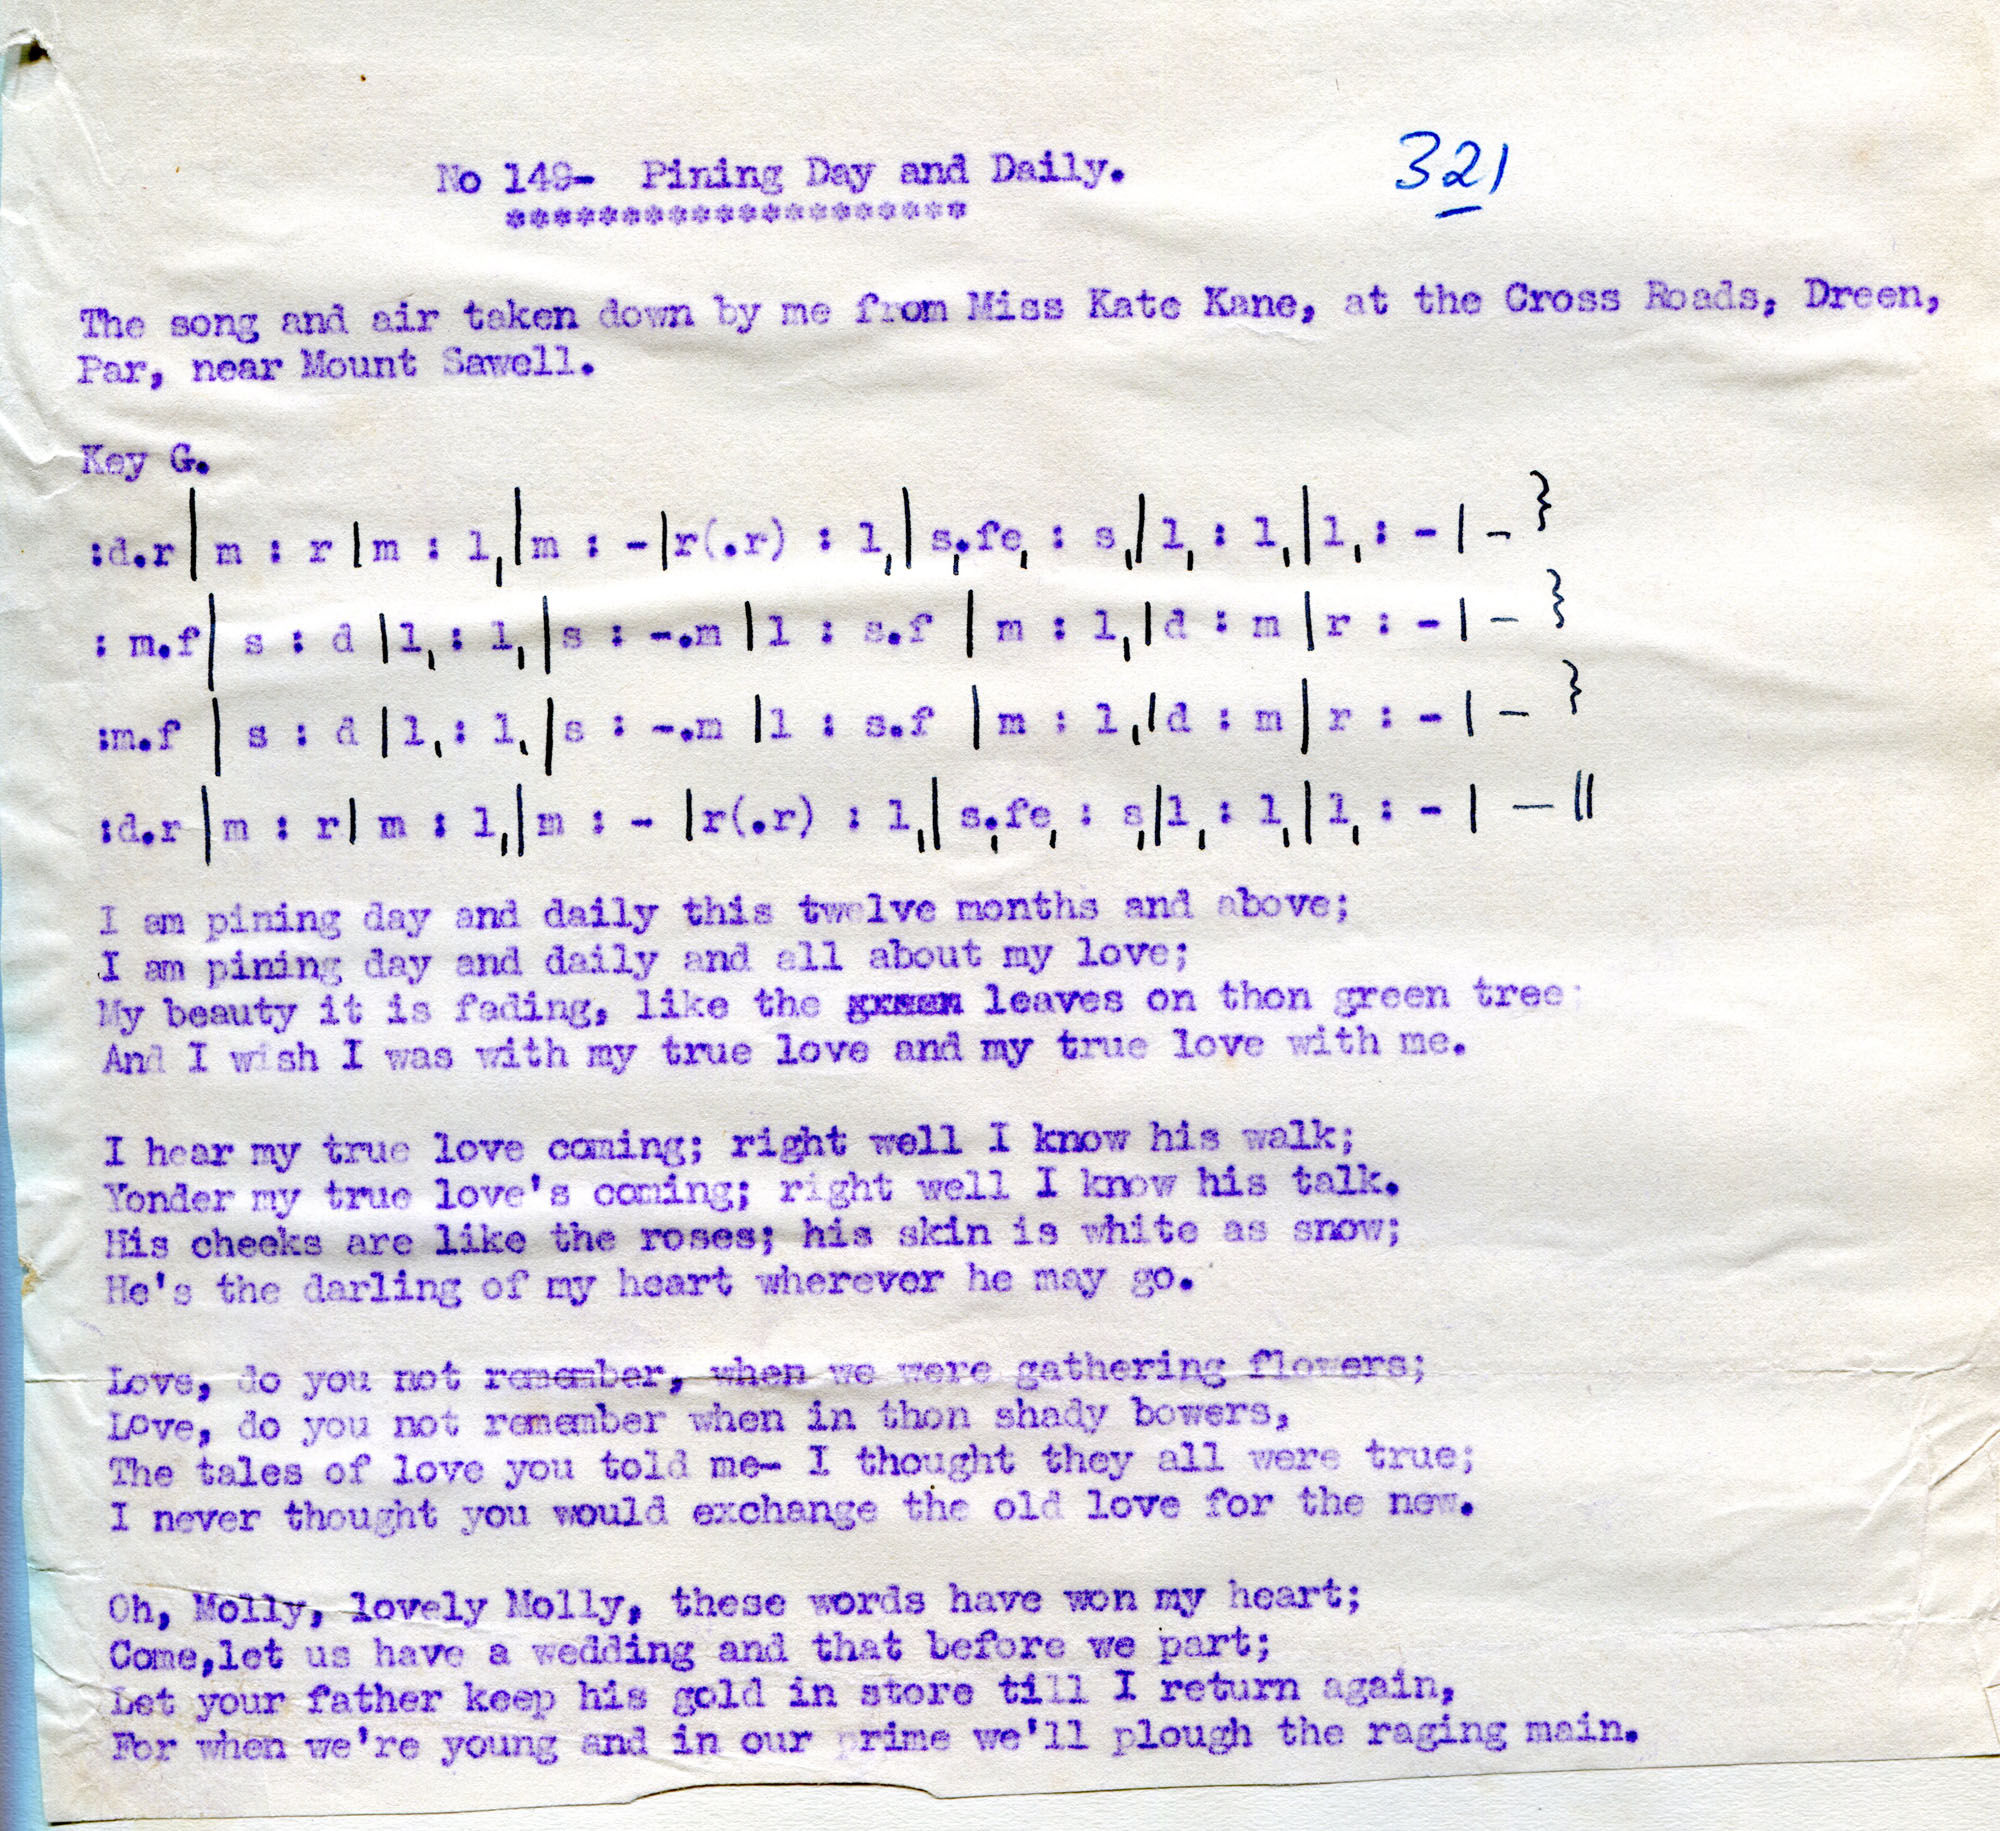 No 149- Pining Day and Daily. 321
********************
The song and air taken down by me from Miss Kate Kane, at the Cross Roads, Dreen,
Par, near Mount Sawell.
Key G.
:d.r | m : r | m : l, | m : - | r(.r) : l, | s,.fe, : s, | l, : l, | l, : - | - }
: m.f | s : d | l, : l, | s : -.m | l : s.f | m : l, | d : m | r : - | - }
:m.f | s : d | l, : l, | s : -.m | l : s.f | m : l, | d : m | r : - | - }
:d.r | m : r | m : l, | m : - | r(.r) : l, | s,.fe, : s, | l, : l, | l, : - | - ||
I am pining day and daily this twelve months and above;
I am pining day and daily and all about my love;
My beauty it is fading, like the leaves on thon green tree;
And I wish I was with my true love and my true love with me.
I hear my true love coming; right well I know his walk;
Yonder my true love's coming; right well I know his talk.
His cheeks are like the roses; his skin is white as snow;
He's the darling of my heart wherever he may go.
Love, do you not remember, when we were gathering flowers;
Love, do you not remember when in thon shady bowers,
The tales of love you told me- I thought they all were true;
I never thought you would exchange the old love for the new.
Oh, Molly, lovely Molly, these words have won my heart;
Come,let us have a wedding and that before we part;
Let your father keep his gold in store till I return again,
For when we're young and in our prime we'll plough the raging main.